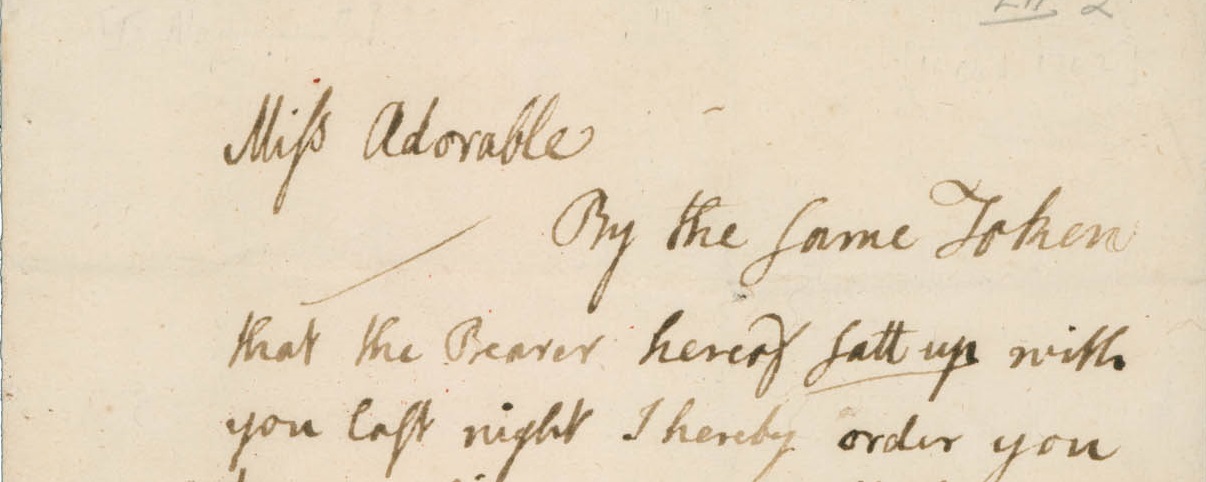 Miſs Adorable
By the ſame Token
that the Bearer hereof ſatt up with
you laſt night I hereby order you